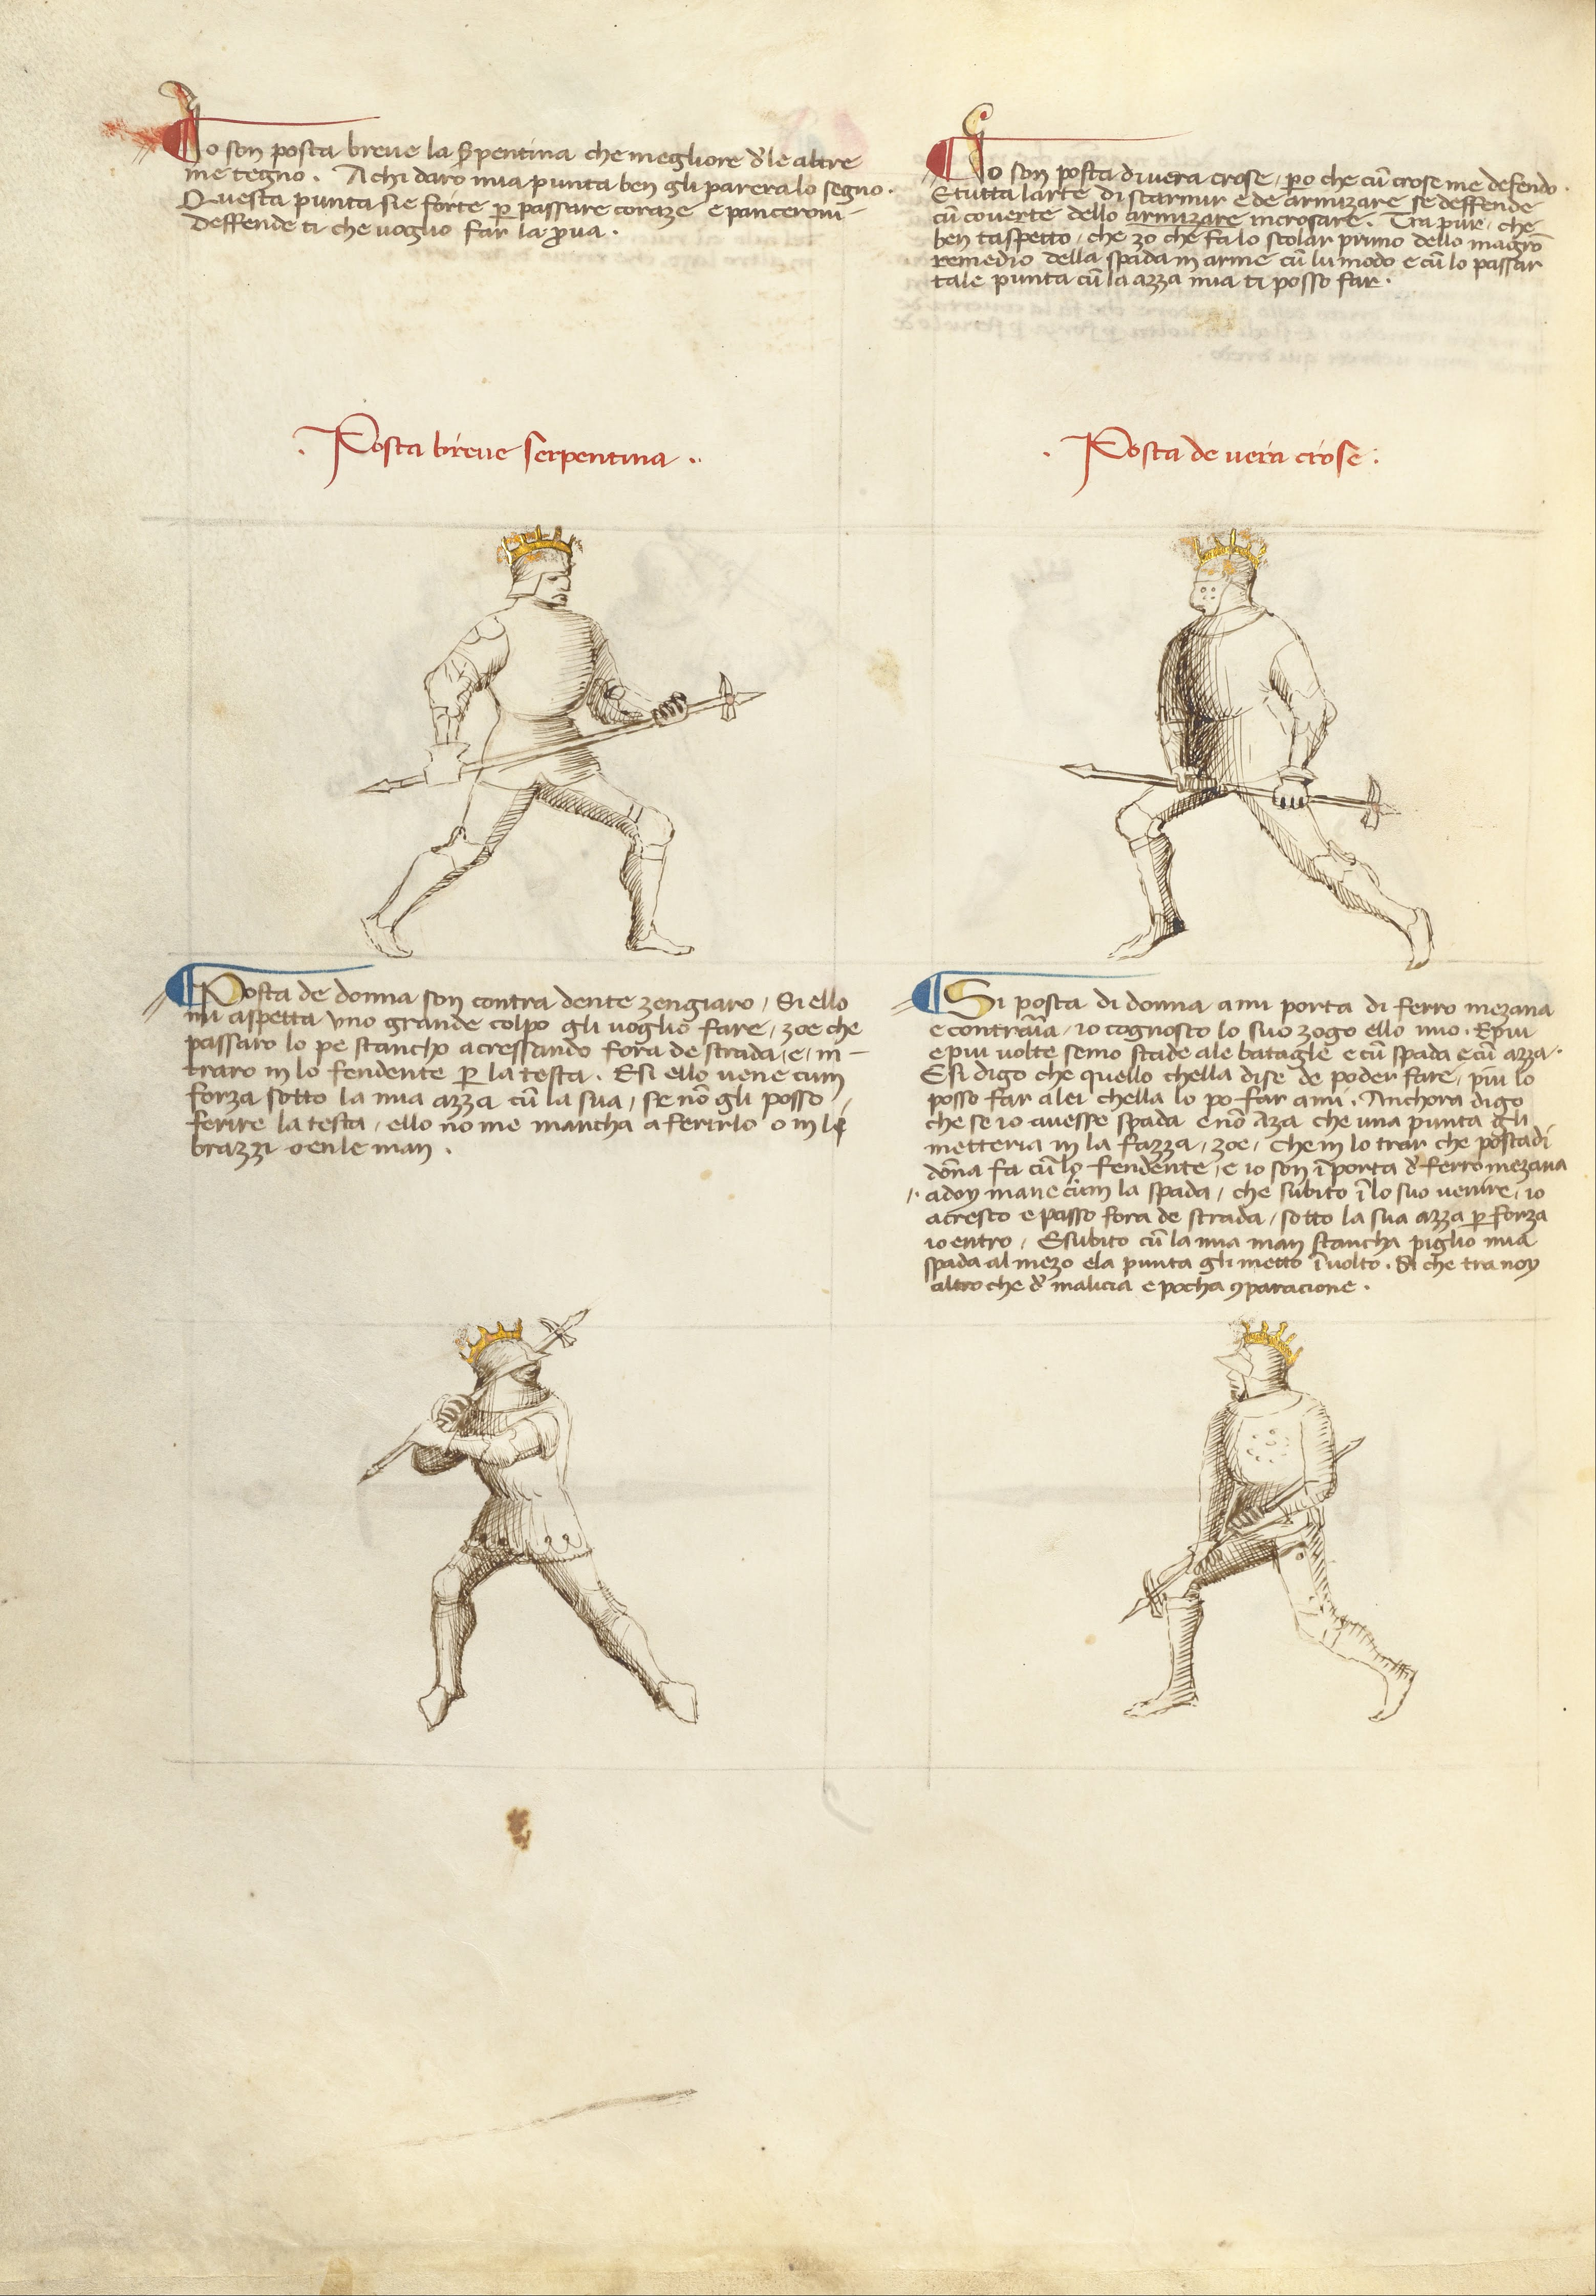 Io son posta breue la s̄pentina che megliore d'le altre
me tegno. A chi daro mia punta ben gli parera lo segno.
Questa punta si e forte p̱ passare coraze e panceroni
deffende ti che uoglio far la ꝓua.
Posta breue serpentina
Io son posta di uera crose, p̱o che cū crose me defendo.
E tutta larte di scarmir e de armizare se deffende
cū couerte dello armizare incrosare. Tra pur, che
ben taspetto, che zo che fa lo scolar primo dello magrō
remedio della spada in arme cū lu modo e cū lo passar
tale punta cū la azza mia ti posso far.
Posta de uera crose
Posta de donna son contra dente zengiaro, Si ello
mi aspetta vno grande colpo gli uoglio fare, zoe che
passaro lo pe stancho acressando fora de strada, e, in-
traro in lo fendente p̱ la testa. E si ello uene cum
forza sotto la mia azza cū la sua, se nō gli posso
ferire la testa, ello no me mancha a ferirlo o in li
brazzi o en le man.
Si posta di donna a mi porta di ferro mezana
e contrā̄ia, io cognosco lo suo zogo ello mio. E piu
e piu uolte semo stade ale batagle e cū spada e cū azza.
E si digo che quello chella dise de poder fare, piu lo
posso far a lei chella lo po far a mi. Anchora digo
che se io auesse spada e nō aza che una punta gli
metteria in la fazza, zoe, che in lo trar che posta di
dōna fa cū lo fendente, e io son ī porta d' ferro mezana
a doy mane cum la spada, che subito ī lo suo uenire, io
acresco e passo fora de strada, sotto la sua azza p̱ forza
io entro, E subito cū la mia man stancha piglio mia
spada al mezo e la punta gli metto ī uolto. Si che tra noy
altro che d' malicia e pocha ꝯparacione.